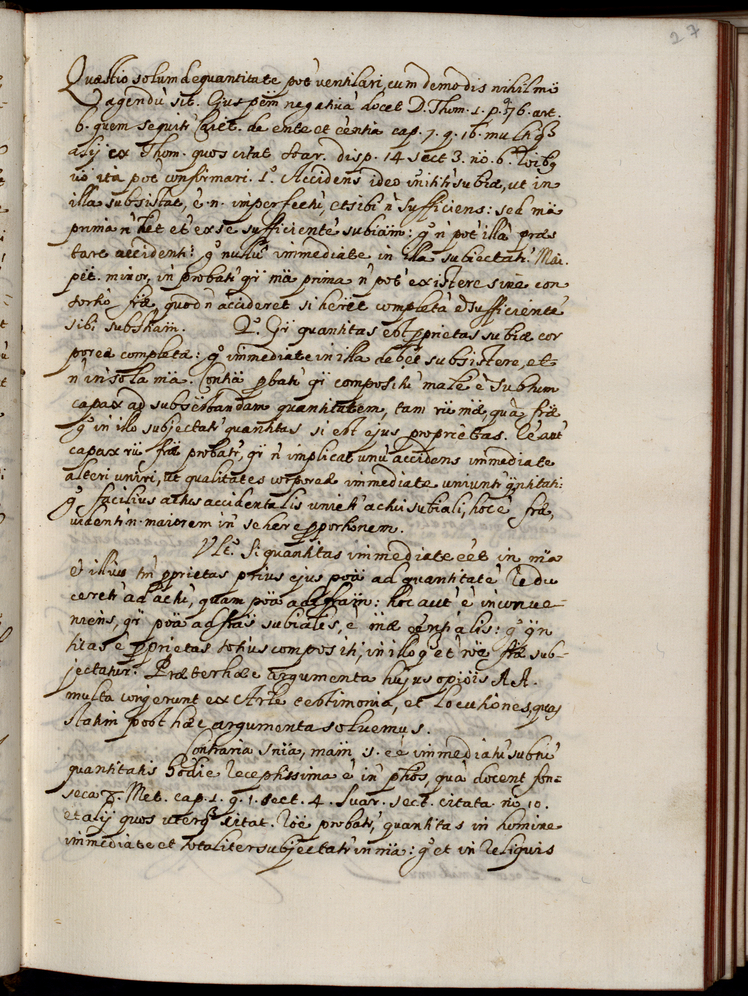 27
Quæstio solum de quantitate pot ventilari, cum de modis nihil mõ
agendũ sit. Cujus pẽm negativã docet D. Thom. 1. p. q. 76. art.
6. quem sequitr Caiet. de ente et centia cap. 7. q. 16. multiq3
alij ex Thom. quos citat Soar. disp. 14 sect 3. no. 6.
ita pot confirmari. 1º. Accidens ideo inititr subiæ, ut in
illa subsistat, è n. imperfectũ, et sibi ñ sufficiens: sed mã
prima ñ het et èx se sufficientẽ subiam: gº ñ pot illã præs
tare accidenti: gº nullũ immediate in illa subjectatr. Mai.
pẽt. minor, in probatr qr mã prima ñ pot existere sine con
sortio fræ quod ñ accideret si heret completã è sufficientẽ
sibi subsñam. 2º. Qr quantitas est pprietas subiæ cor
poreæ completæ: gº immediate in illa debet subsistere, et
ñ in sola mã. Contiã pbatr qr compositũ male è subtum
capax ad subsẽtandam quantitatem, tam rũ mæ, quã fræ
gº in illo subjectatr quantitas si est ejus proprietas.
capax rũ fræ probatr, qr ñ implicat unũ accidens immediate
alteri uniri, ut qualitates corporeæ immediate uniuntr qntitati:
gº facilius actus accidentalis unietr actui subiali, hoc è fræ,
videntr n. maiorem inr se here pportionem.
Ult. Si quantitas immediate eet in mã
è illius tm pprietas prius ejus poã ad quantitatẽ redu
ceretr ad actũ, quam poã ad frãm: hoc aut è inconve-
niens, qr poã ad frãs subiales, è mæ centialis: gº qn
titas è pprietas totius compositi, in illo gº et rõe fræ sub-
jectatur. Præter hæc argumenta hujus opiois AA.
multa congerunt ex Arle testimonia, et locutiones, quas
statim post hæc argumenta solvemus.
Contraria snia, mam s. eè immediatũ subtũ
quantitatis hodie receptissima è inr phos, quã docent Fon-
seca 7. Met. cap. 1. q. 1. sect. 4. Suar. sect. citata no 10.
et alij quos uterq3 citat. Rõe probatr, quantitas in homine
immediate et totaliter subjectatr in mã: gº et in reliquis